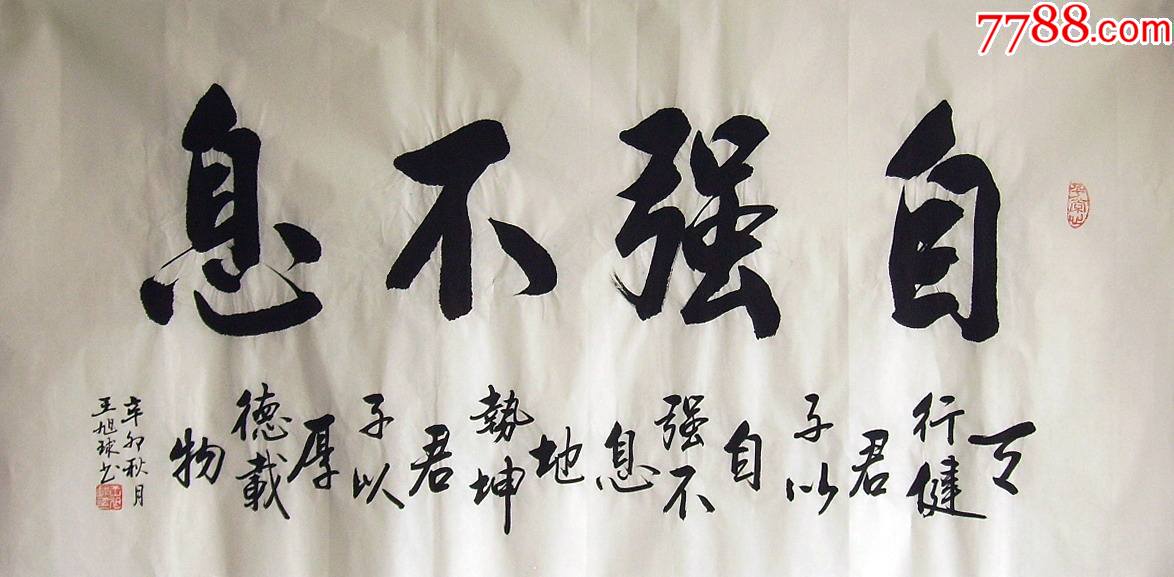 7788.com
自强不息
天行健君子以自强不息地勢坤君子以厚德載物
辛卯秋月
王旭球书